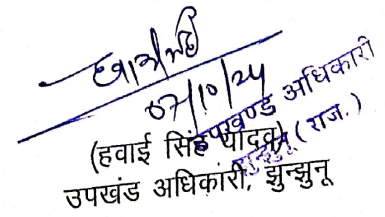 07/10/24
उपखण्ड अधिकारी
झुन्झुनू (राज.)
(हवाई सिंह यादव)
उपखंड अधिकारी, झुन्झुनू